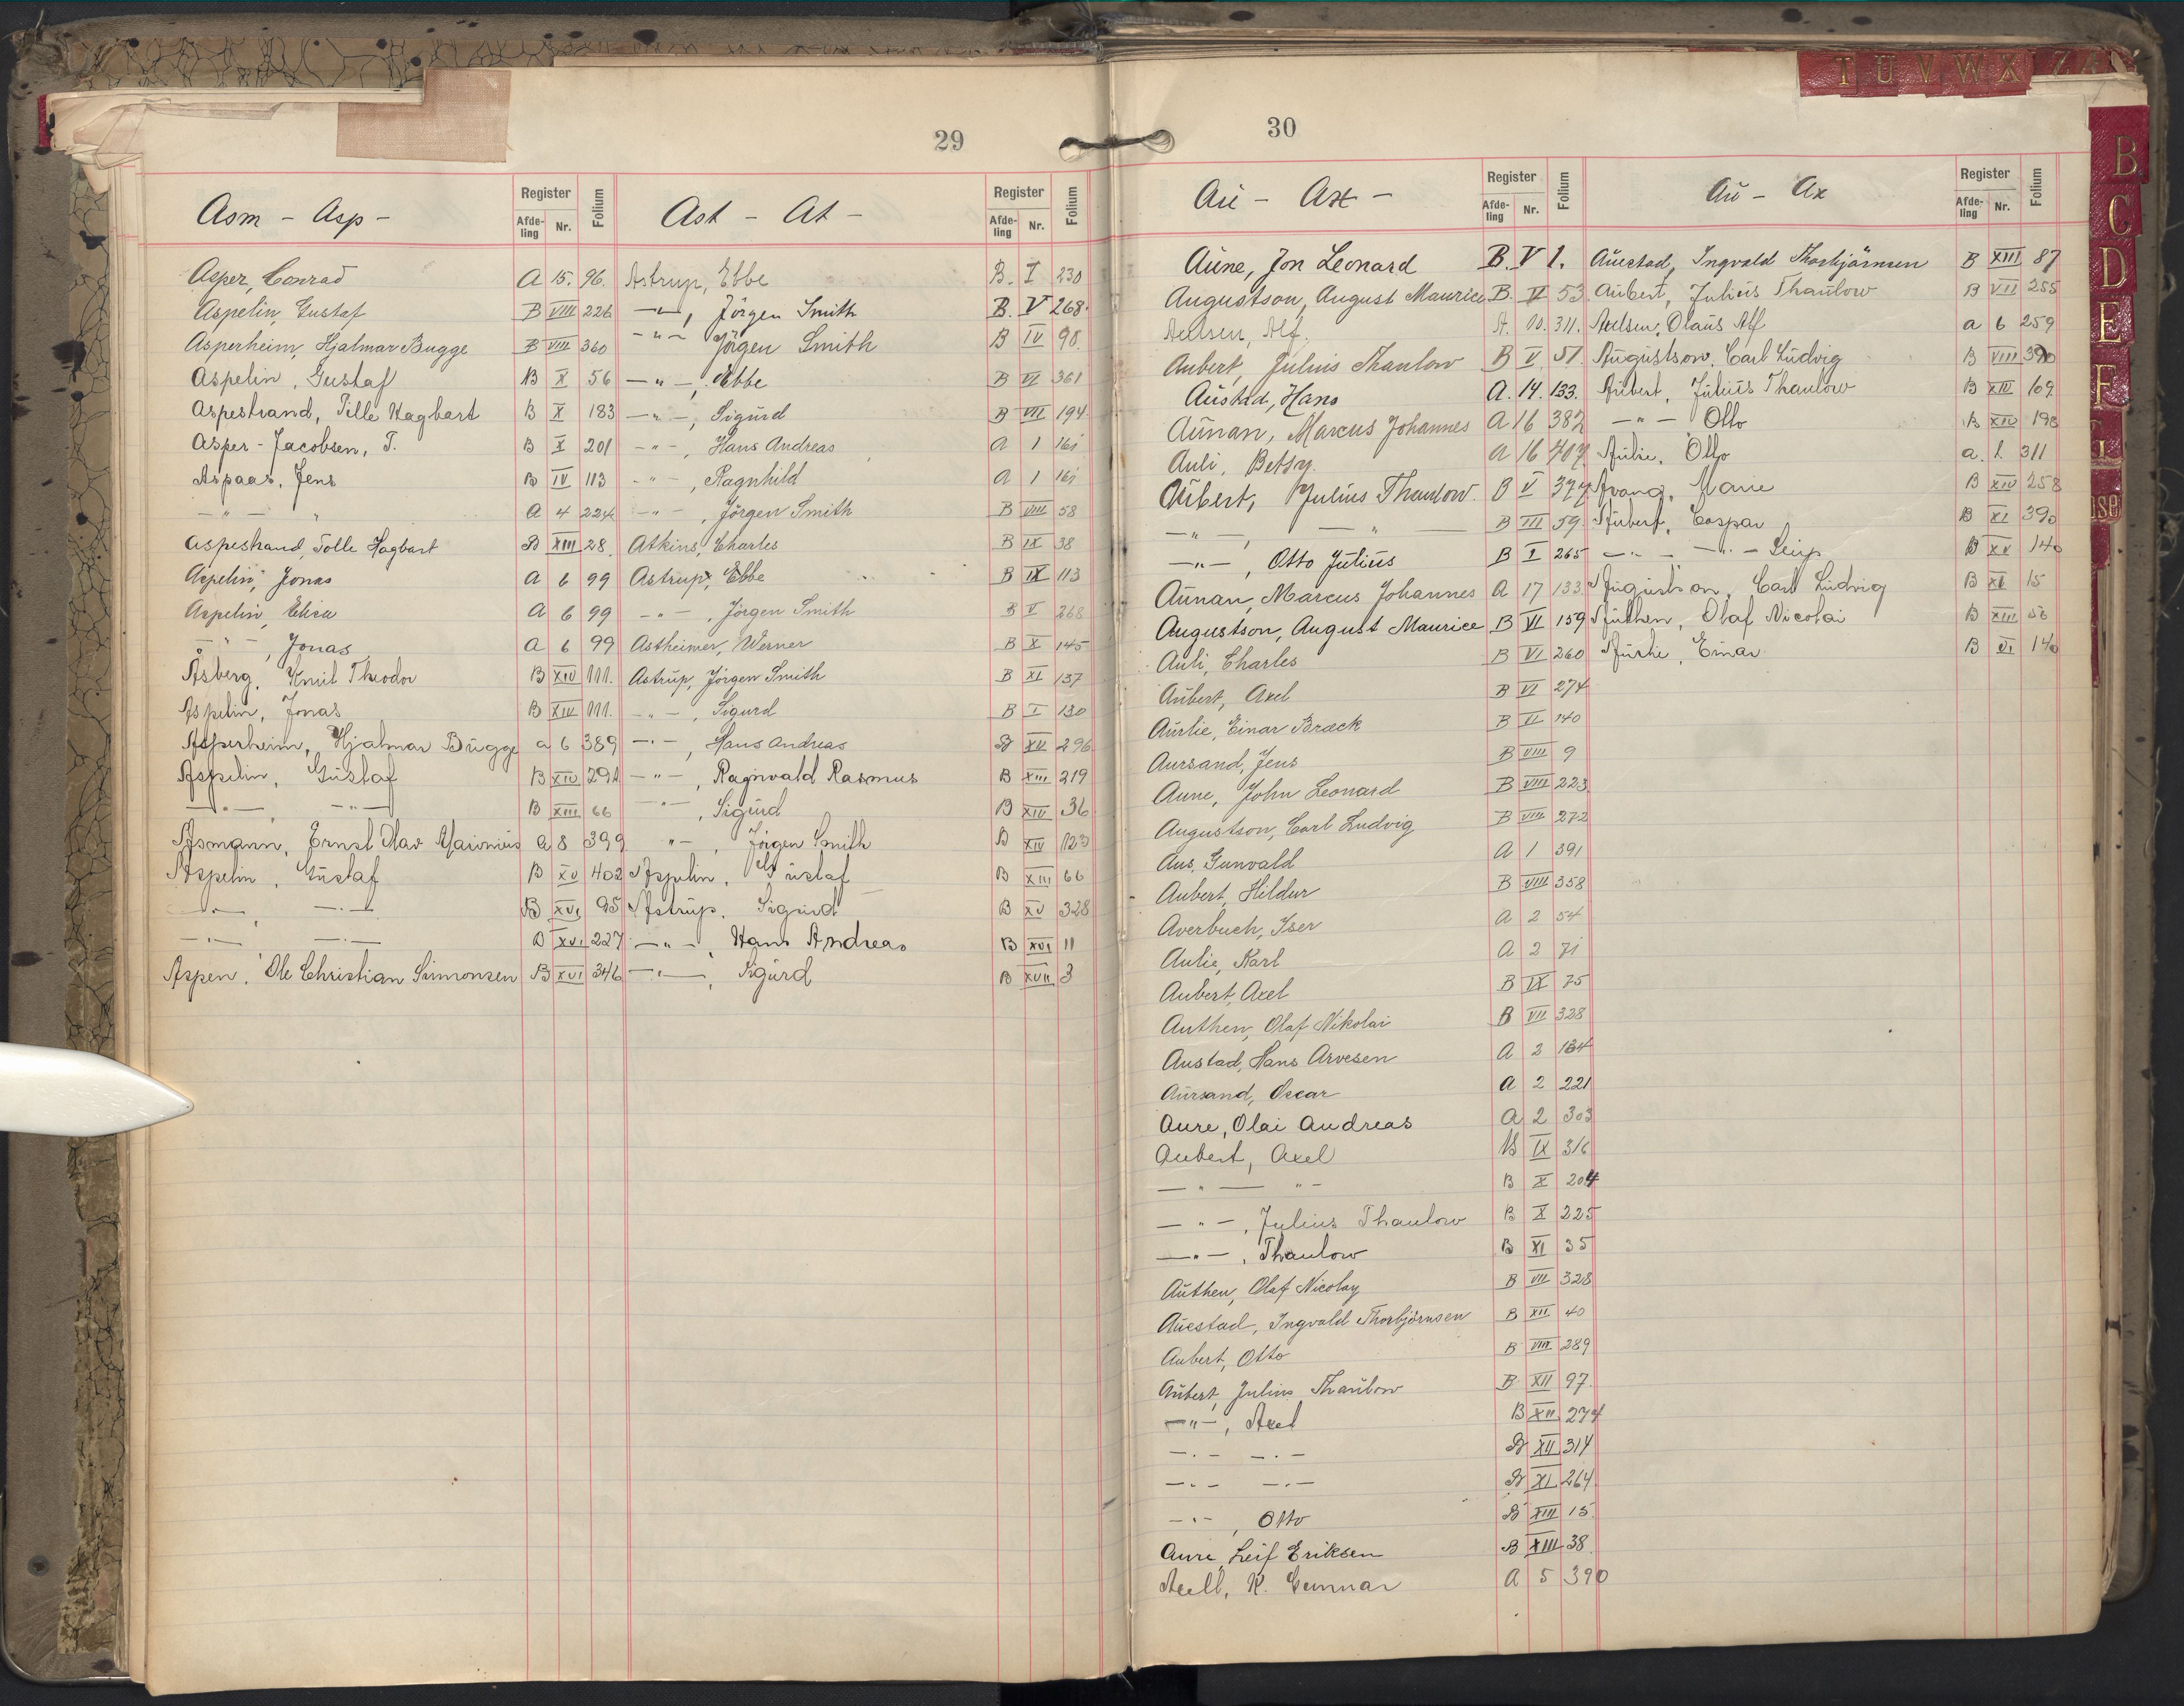 29
Asm - Asp -
Register
Afde-
ling
Nr.
Folium
Asper, Conrad A 15. 96.
Aspelin, Gustaf B VIII 226
Asperheim, Hjalmar Bugge B VIII 360
Aspelin, Gustaf B X 56
Aspestrand, Tille Hagbart B X 183
Asper-Jacobsen, T. B X 201
Aspaas, Jens B IV 113
- " - " A 4 224
Aspestrand, Tolle Hagbart B XIII 28.
Aspelin, Jonas A 6 99
Aspelin, Elisa A 6 99
- " -, Jonas A 6 99
Åsberg, Emil Theodor B XIV 111.
Aspelin, Jonas B XIV 111.
Asperheim, Hjalmar Bugge a 6 389
Aspelin, Gustaf B XIV 291
- " -, - " - B XIII 66
Asmann, Ernst Olav a 8 399
Aspelin, Gustaf B XV 402
- " -, - " - B XVI 95
- " -, - " - B XVI 227
Aspen, Ole Christian Simonsen B XVI 346
Ast - At -
Register
Afde-
ling
Nr.
Folium
Astrup, Ebbe B. I 230
- " -, Jörgen Smith B. V 268.
- " - Jörgen Smith B IV 98.
- " -, Ebbe B VI 361
- " -, Sigurd B VII 194
- " -, Hans Andreas A 1 161
- " -, Ragnhild A 1 161
- " -, Jörgen Smith B VIII 58
Atkins, Charles B IX 38
Astrup, Ebbe B IX 113
- " -, Jörgen Smith B V 268
Astheimer, Werner B X 145
Astrup, Jörgen Smith B XI 137
- " -, Sigurd B I 130
- " -, Hans Andreas B XII 296
- " -, Ragnvald Rasmus B XIII 219
- " -, Sigurd B XIV 36
" -, Jörgen Smith B XIV 123
Aspelin, Gustaf B XIII 66
Astrup, Sigurd B XV 328
- " -, Hans Andreas B XVI 11
- " -, Sigurd B XVII 3
30
Au - Ax -
Register
Afde-
ling
Nr.
Folium
Aune, Jon Leonard B. V 1.
Augustson, August Maurice B. V 53.
Axelsen, Alf. A. 10. 311.
Aubert, Julius Thaulow B V 51.
Austad, Hans A. 14. 133.
Aunan, Marcus Johannes A 16 382
Auli, Betsy. A 16 407
Aubert, Julius Thaulow. B V 377
- " -, - " - B III 59.
- " -, Otto Julius B I 265
Aunan, Marcus Johannes A 17 133.
Augustson, August Maurice B VI 159
Auli, Charles B VI 260
Aubert, Axel B VI 274
Aurlie, Einar Brack B VI 140
Aursand, Jens B VIII 9
Aune, John Leonard B VIII 223
Augustson, Carl Ludvig B VIII 272
Aus, Gunvald A 1 391
Aubert, Hildur B VIII 358
Averbuch, Iser A 2 54
Aulie, Karl A 2 71
Aubert, Axel B IX 75
Authen, Olaf Nikolai B VII 328
Austad, Hans Arvesen A 2 184
Aursand, Oscar A 2 221
Aure, Olai Andreas A 2 303
Aubert, Axel B IX 316
- " - " - B X 204
- " -, Julius Thaulow B X 225
- " -, Thaulow B XI 35
Authen, Olaf Nicolay B VII 328
Auestad, Ingvald Thorbjörnsen B XII 40
Aubert, Otto B VIII 289
Aubert, Julius Thaulow B XII 97.
- " -, Axel B XII 274
- " - - " - B XII 314
- " - - " - B XI 264
- " -, Otto B XIII 15.
Aure, Leif Eriksen B XIII 38.
Axell, K. Gunnar A 5 390
Au - Ax
Register
Afde-
ling
Nr.
Folium
Auestad, Ingvald Thorbjörnsen B XIII 87
Aubert, Julius Thaulow B VII 255
Axelsen, Olaus Alf a 6 259
Augustson, Carl Ludvig B VIII 390
Aubert, Julius Thaulow B XIV 169
- " - Otto B XIV 198
Aulie, Otto a. 1. 311
Avang, Marie B XIV 258
Aubert, Caspar B XI 390
- " - - " - B XV 140
Augustson, Carl Ludvig B XI 15
Authen, Olaf Nicolai B XIII 56
Aurlie, Einar B VI 140
T U V W X
B
C
D
E
F
G